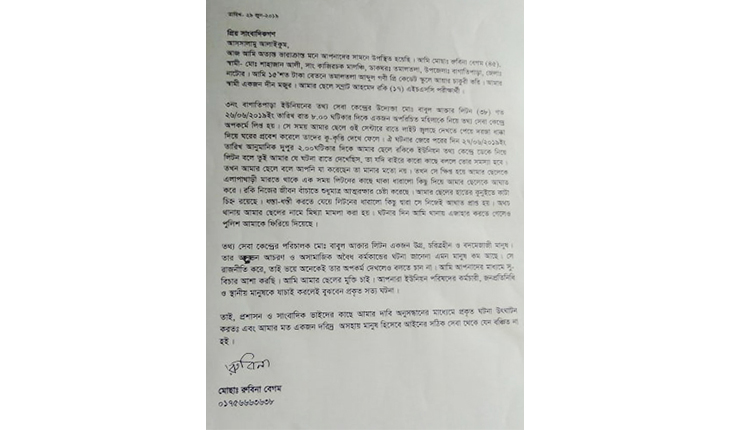 তারিখ- ২৯ জুন-২০১৯
প্রিয় সাংবাদিকগণ
আসসালামু আলাইকুম,
আজ আমি অত্যন্ত ভারাক্রান্ত মনে আপনাদের সামনে উপস্থিত হয়েছি। আমি মোছাঃ রুবিনা বেগম (৪৫)
স্বামী- মোঃ শাহাজান আলী, সাং কাজিরচক মালঞ্চি, ডাকঘরঃ তমালতলা, উপজেলাঃ বাগাতিপাড়া, জেলাঃ
নাটোর। আমি ১৫'শত টাকা বেতনে তমালতলা আব্দুল গনী প্রি কেডেট স্কুলে আয়ার চাকুরী করি। আমার
স্বামী একজন দীন মজুর। আমার ছেলে সম্রাট আহমেদ রকি (১৭) এইচএসসি পরীক্ষার্থী।
৩নং বাগাতিপাড়া ইউনিয়নের তথ্য সেবা কেন্দ্রের উদ্যোক্তা মোঃ বাবুল আক্তার লিটন (৩৮) গত
২৬/০৬/২০১৯ইং তারিখ রাত ৮.০০ ঘটিকার দিকে একজন অপরিচিত মহিলাকে নিয়ে তথ্য সেবা কেন্দ্রে
অপকর্মে লিপ্ত হয়। সে সময় আমার ছেলে ওই সেন্টারে রাতে লাইট জ্বলছে দেখতে পেয়ে দরজা ধাক্কা
দিয়ে ঘরের প্রবেশ করেলে তাদের কু-কৃত্তি দেখে ফেলে। ঐ ঘটনার জেরে পরের দিন ২৭/০৬/২০১৯ইং
তারিখ আনুমানিক দুপুর ২.০০ঘটিকার দিকে আমার ছেলে রকিকে ইউনিয়ন তথ্য কেন্দ্রে ডেকে নিয়ে
লিটন বলে তুই আমার যে ঘটনা রাতে দেখেছিস, তা যদি বাইরে কারো কাছে বললে তোর সমস্যা হবে।
তখন আমার ছেলে বলে আপনি যা করেছেন তা মানার মতো নয়। তখন সে ক্ষিপ্ত হয়ে আমার ছেলেকে
এলাপাথাড়ী মারতে থাকে এক সময় লিটনের কাছে থাকা ধারালো কিছু দিয়ে আমার ছেলেকে আঘাত
করে। রকি নিজের জীবন বাঁচাতে শুধুমাত্র আত্মরক্ষার চেষ্টা করেছে। আমার ছেলের হাতের কুনুইতে কাটা
চিহ্ন রয়েছে। ধস্তা-ধস্তী করতে যেয়ে লিটনের ধারালো কিছু দ্বারা সে নিজেই আঘাত প্রাপ্ত হয়। অথচ
থানায় আমার ছেলের নামে মিথ্যা মামলা করা হয়। ঘটনার দিন আমি থানায় এজাহার করতে গেলেও
পুলিশ আমাকে ফিরিয়ে দিয়েছে।
তথ্য সেবা কেন্দ্রের পরিচালক মোঃ বাবুল আক্তার লিটন একজন উগ্র, চরিত্রহীন ও বদমেজাজী মানুষ।
তার আচরণ ও অসামাজিক অবৈধ কর্মকান্ডের ঘটনা জানেনা এমন মানুষ কম আছে। সে
রাজনীতি করে, তাই ভয়ে অনেকেই তার অপকর্ম দেখলেও বলতে চান না। আমি আপনাদের মাধ্যমে সু-
বিচার আশা করছি। আমি আমার ছেলের মুক্তি চাই। আপনারা ইউনিয়ন পরিষদের কর্মচারী, জনপ্রতিনিধি
ও স্থানীয় মানুষকে যাচাই করলেই বুঝবেন প্রকৃত সত্য ঘটনা।
তাই, প্রশাসন ও সাংবাদিক ভাইদের কাছে আমার দাবি অনুসন্ধানের মাধ্যমে প্রকৃত ঘটনা উৎঘাটন
করতঃ এবং আমার মত একজন দরিদ্র অসহায় মানুষ হিসেবে আইনের সঠিক সেবা থেকে যেন বঞ্চিত না
হই।
রুবিনা
মোছাঃ রুবিনা বেগম
০১৭৫৬৬৬৩৬৩৮